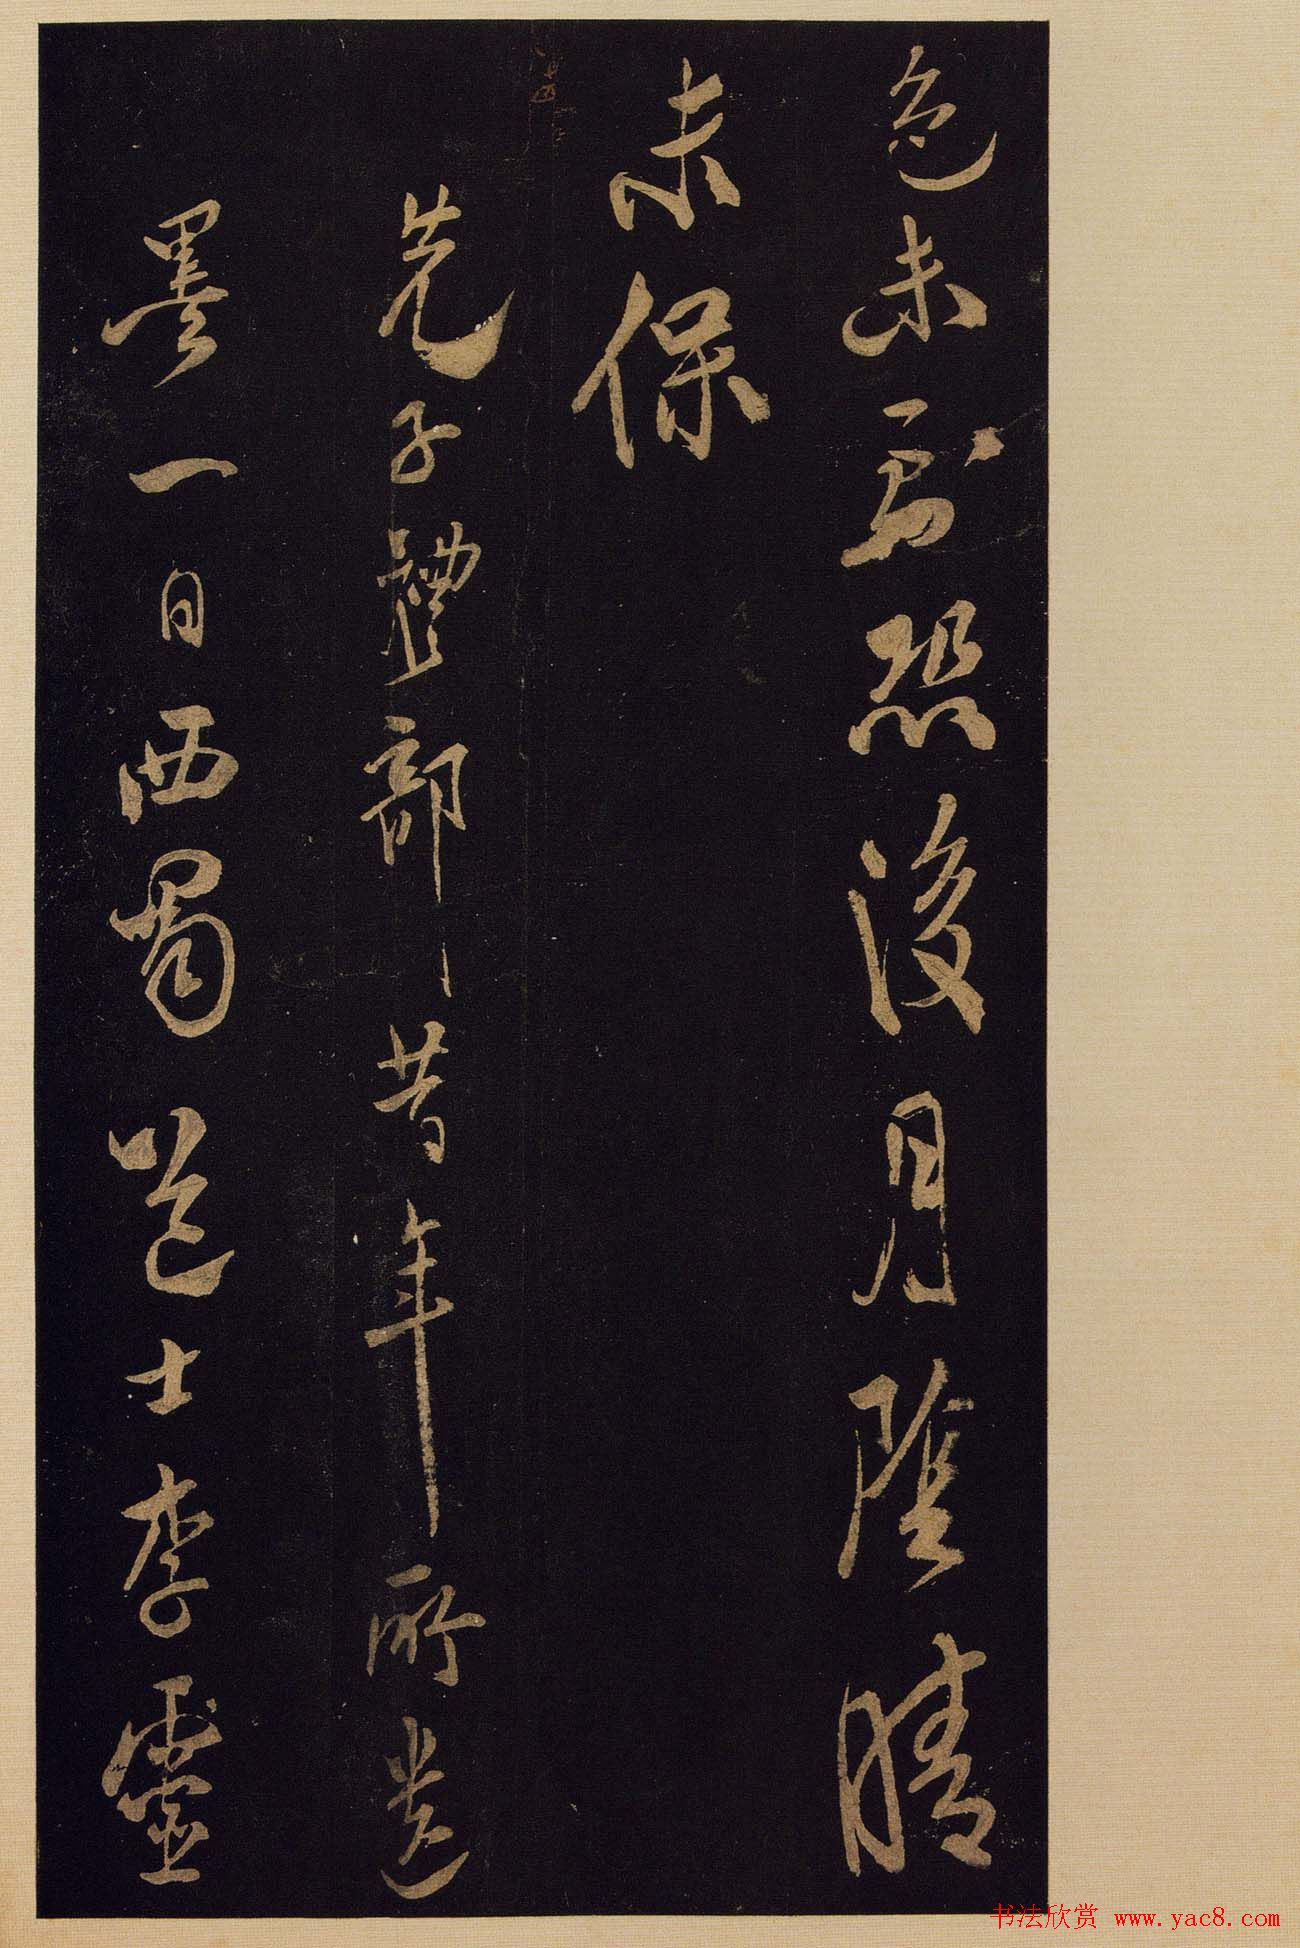 色未恐後月陰晴
未保
先子禮部昔年所遺
墨一日西蜀道士李靈
书法欣赏 www.yac8.com